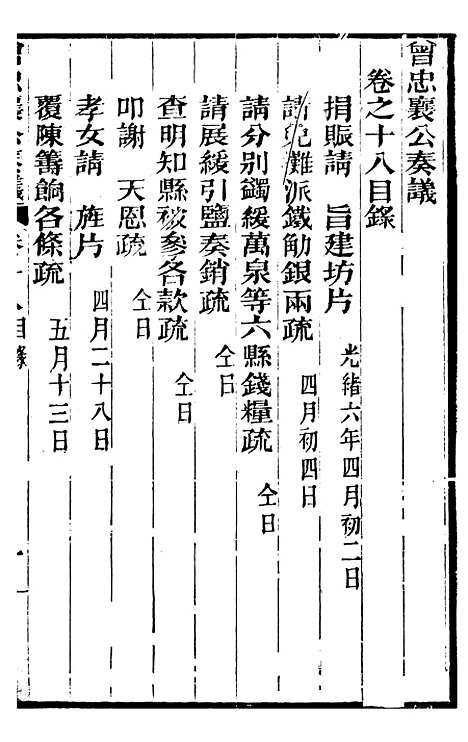 曾忠襄公奏議
卷之十八目錄
捐賑請　旨建坊片　光緒六年四月初二日
請免攤派鐵觔銀兩疏　四月初四日
請分別蠲緩萬泉等六縣錢糧疏　仝日
請展緩引鹽奏銷疏　仝日
查明知縣被參各款疏　仝日
叩謝　天恩疏　仝日
孝女請　旌片　四月二十八日
覆陳籌餉各條疏　五月十三日
曾忠襄公奏議　卷十八目錄　一